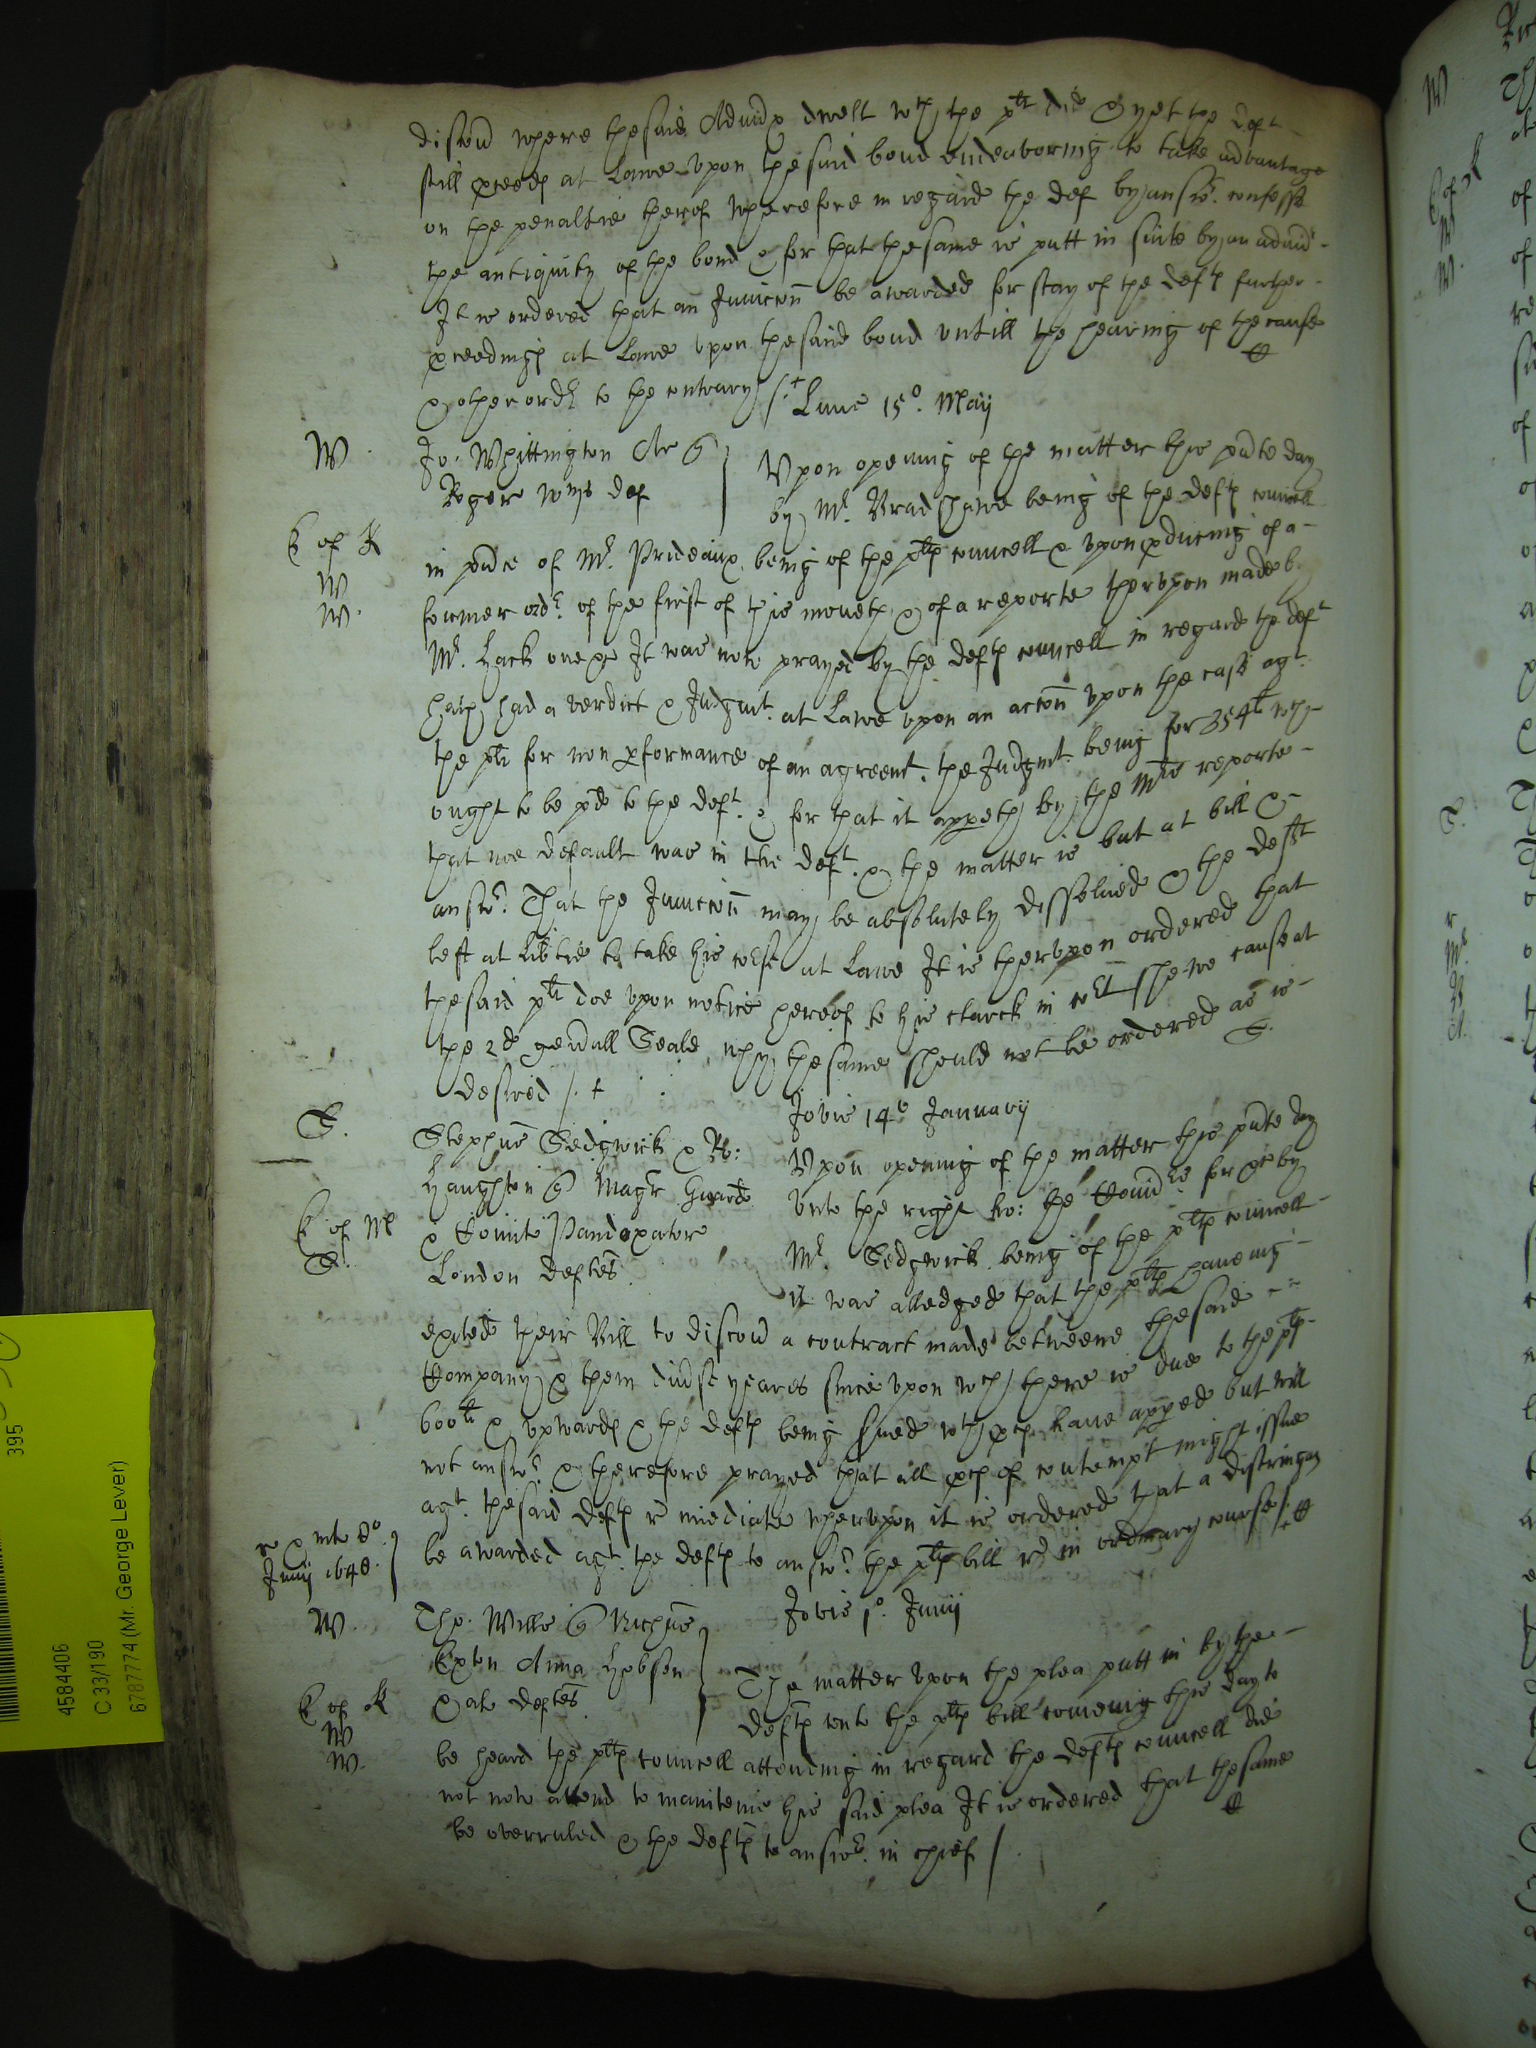 discou'd where the said Admx dwelt wth the plt did & yet the Deft
still pceeds at Lawe upon the said bond endeavoring to take advantage
on the penaltie therof Wherefore in regard the Def by answr. confesse
the antiquity of the bond & for that the same is putt in suite by an admr
It is ordered that an Iniuccon be awarded for stay of the Defts further
pceedings at Lawe upon the said bond untill the hearing of the cause
& other order to the contrary /
Lune 15o. Maij
W.
Jo. Whittington Ar
Roger Wms Def
Upon opening of the matter this pnte day
by Mr. Bradshawe being of the Defts councell
E of K
W
W.
in pnce of Mr. Prideaux being of the plts councell & upon pducing of a
former ordr. of the first of this moneth & of a reporte therupon made by
Mr. Hack one &c It was now prayed by the Defts councell in regard the Deft
hath had a verdict & Judgmt. at Lawe upon an accon upon the case agt.
the plt for non pformance of an agreemt. the Judgmt. being for 354l wch
ought to be pd to the Deft. & for that it appeth by the Mrs reporte
that noe default was in the Deft. & the matter is but at bill &
answr. That the Iniuccon may be absolutely dissolved & the Deft
left at Libtie to take his course at Lawe It is therupon ordered that
the said plt doe upon notice hereof to his clarck in cort shewe cause at
the 2d generall Seale why the same should not be ordered as is
desired /
S.
Jovis 14o January
S.
Stephus Sedgwick & Ro:
Haughton Magr Guard
& Comite Pandoxator
London Deftes.
Upon opening of the matter this pnte day
unto the right ho: the Comrs for &c by
Mr. Sedgwick being of the plts councell
it was alledged that the plts haveing
E of M
S.
exited their Bill to discou'd a contract made betweene the said
Company & them divse yeares since upon wch there is due to the plts
600l & upwards & the Defts being Sued wth pces have apped but will
not answr. & therefore prayed that all pces of contempt might issue
agt. the said Defts imediate wherupon it is ordered that a distringas
be awarded agt. the Defts to answr. the plts bill in ordinary course /
Junij 1648.
Jovis 1o. Junij
W.
Tho. Wills Nichus
Exton Anna Hobson
& al Deftes.
The matter upon the plea putt in by the
Defts unto the plts bill comeing this day to
E of K
W
W.
be heard the plts councell attending in regard the Defts councell did
not now attend to mainteine his said plea It is ordered that the same
be overruled & the Defts to answr. in chief /
395
4584406
C 33/190
6787774 (Mr. George Lever)